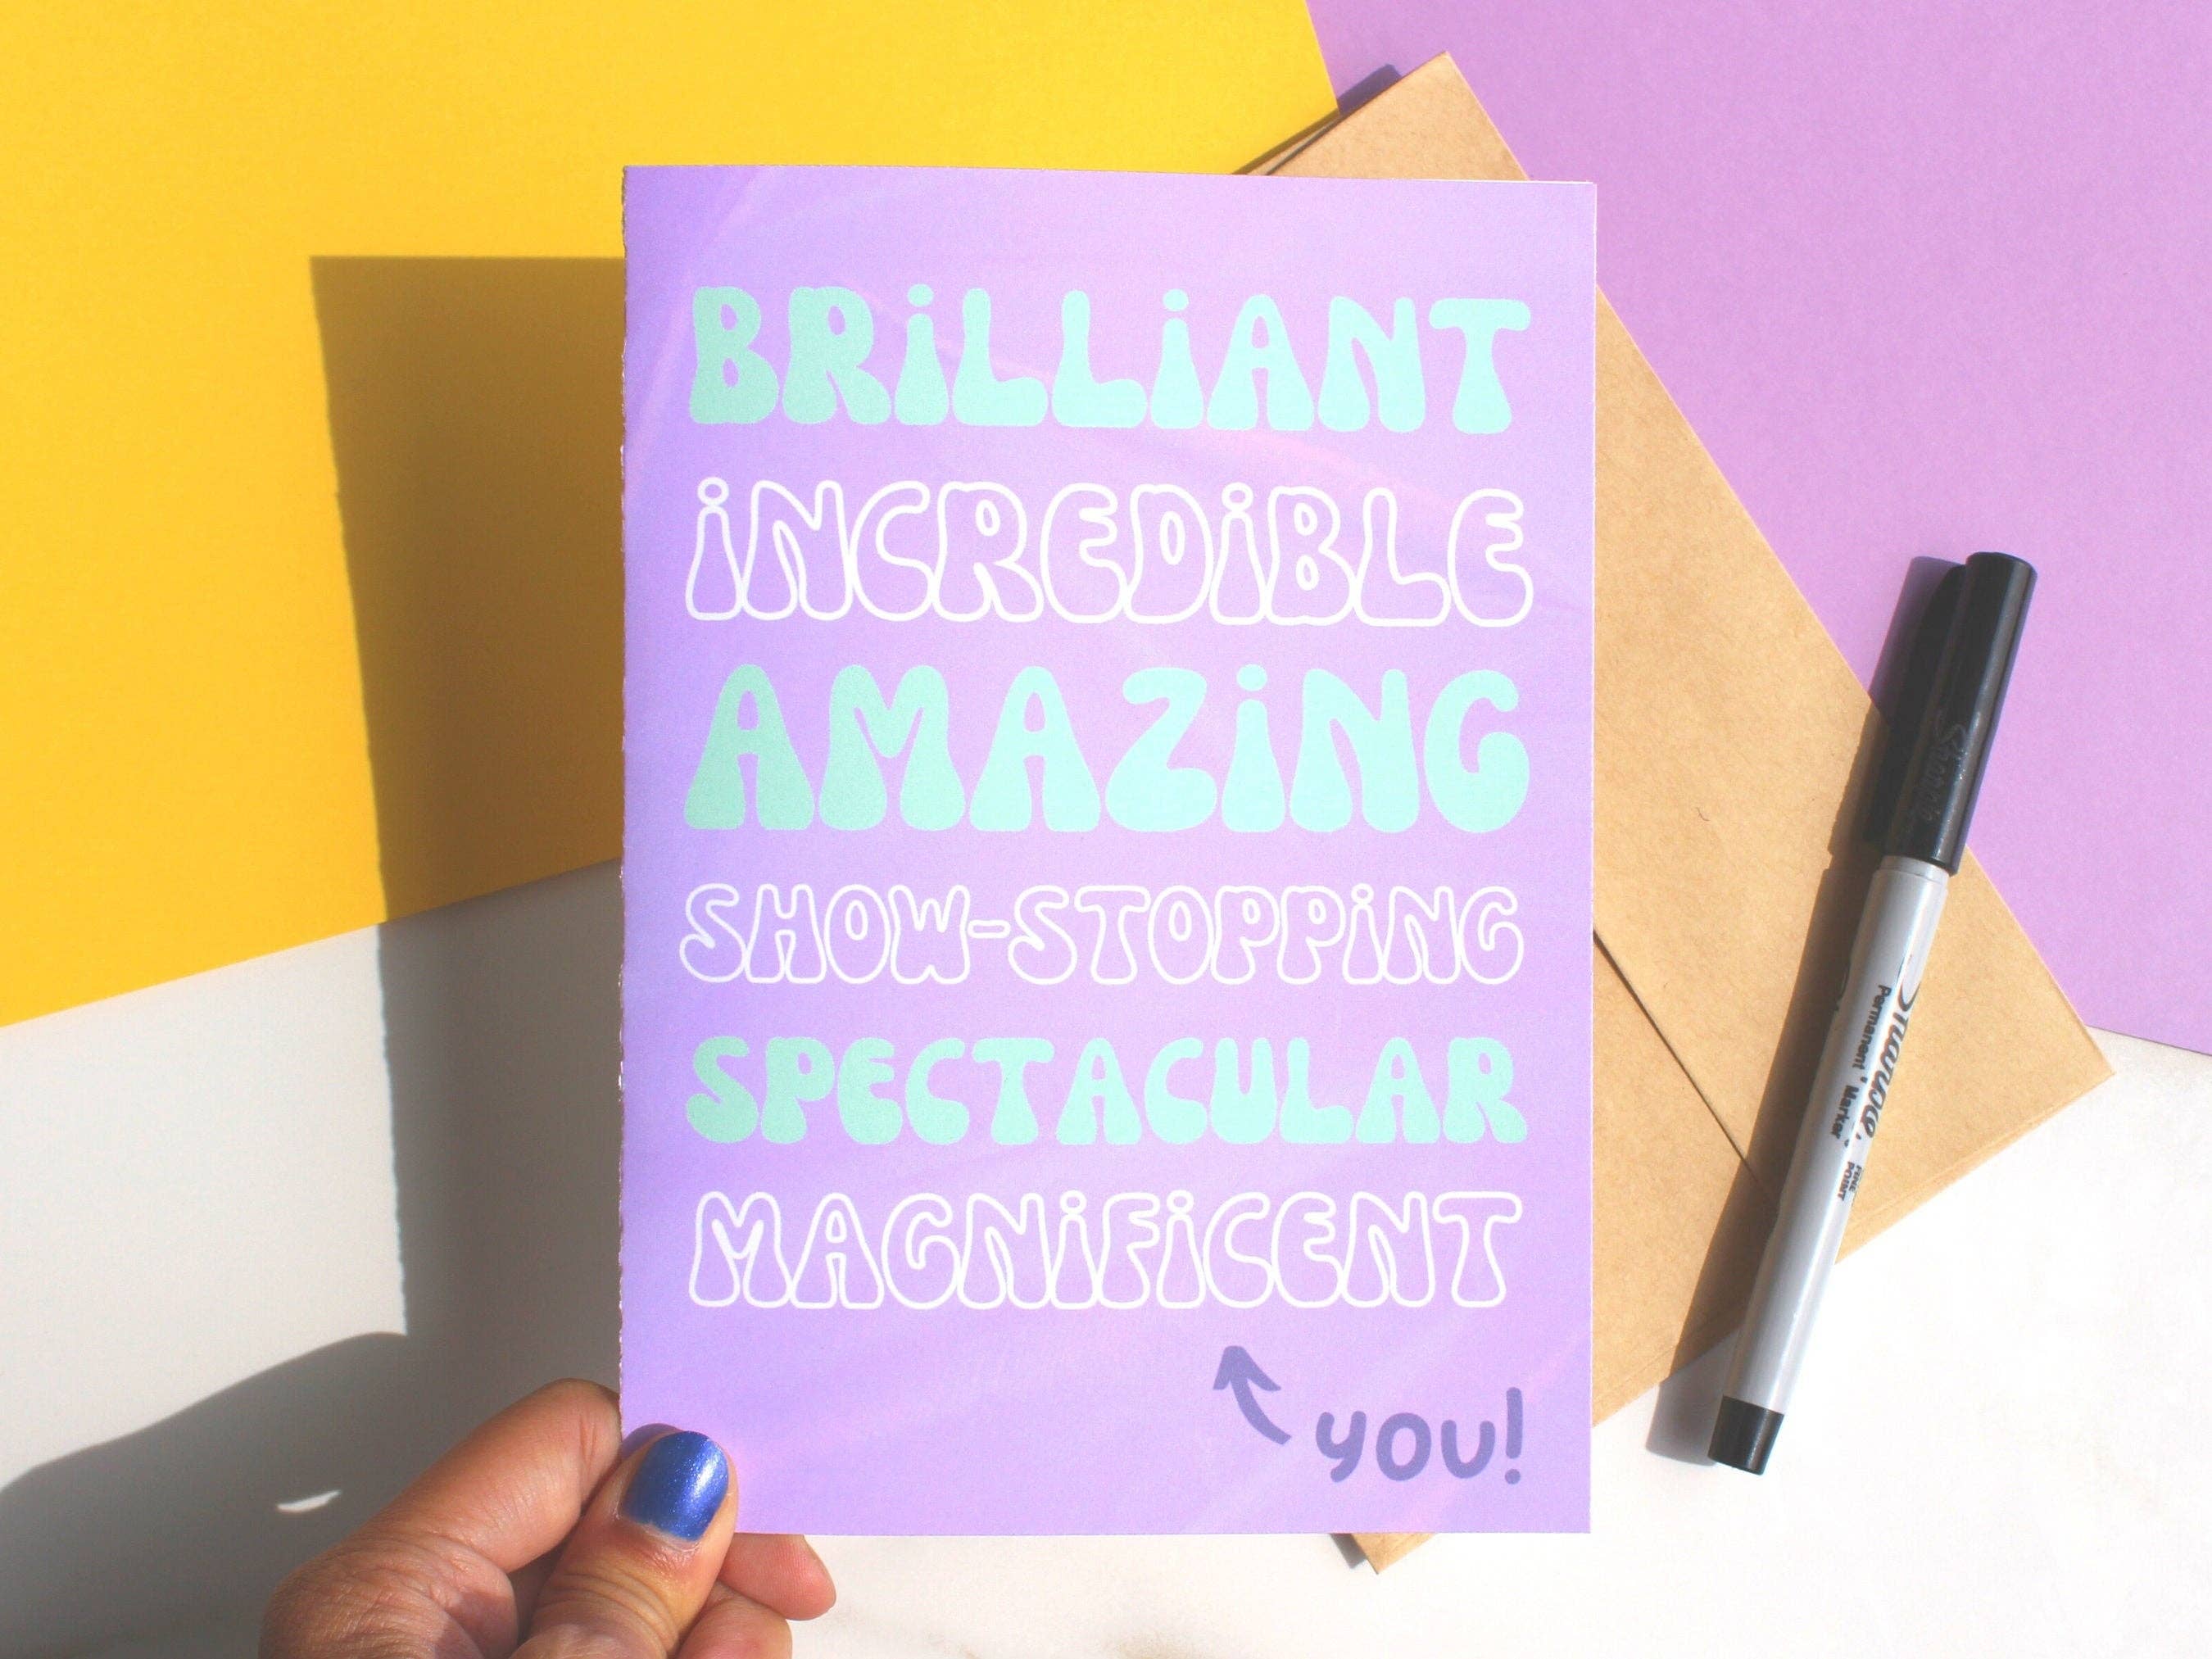 BRiLLiANT
iNCREDiBLE
AMAZiNG
SHOW-STOPPiNG
SPECTACULAR
MAGNiFiCENT
you!
Sharpie
Sharpie
Permanent Marker
FINE
POINT